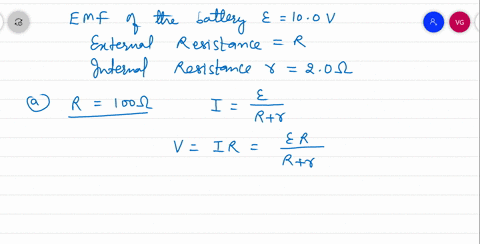 EMF of the battery ε = 10.0 V
External Resistance = R
Internal Resistance r = 2.0 Ω
(a) R = 100Ω I = ε / R+r
V = IR = εR / R+r
VG